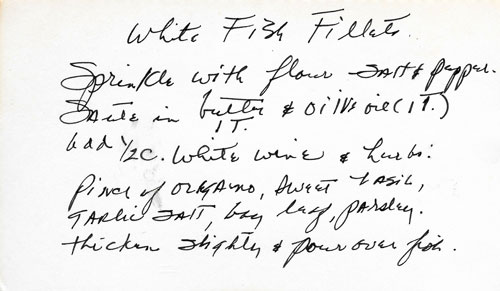 White Fish Fillets
Sprinkle with flour salt & pepper.
Saute in butter & olive oil (1T.)
1T.
Add 1/2 C. White wine & herbs:
Pinch of oregano, sweet basil,
garlic salt, bay leaf, parsley.
thicken slightly & pour over fish.